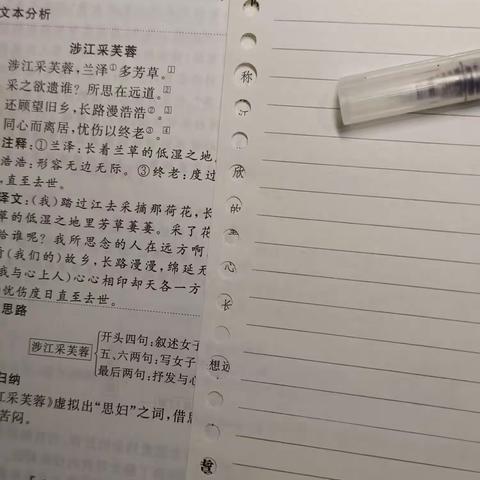 文本分析
涉江采芙蓉
涉江采芙蓉,兰泽①多芳草。[1]
采之欲遗谁?所思在远道。[2]
还顾望旧乡,长路漫浩浩②。[3]
同心而离居,忧伤以终老③。[4]
注释:①兰泽:长着兰草的低湿之地
浩浩:形容无边无际。③终老:度过
直至去世。
译文:(我)踏过江去采摘那荷花,长
草的低湿之地里芳草萋萋。采了花
给谁呢?我所思念的人在远方啊
(我们的)故乡,长路漫漫,绵延无
我与心上人)心心相印却天各一方
忧伤度日直至去世。
思路
涉江采芙蓉
开头四句:叙述女子
五、六两句:写女子
最后两句:抒发与心
归纳
江采芙蓉》虚拟出“思妇”之词,借
苦闷。
称
欣
的
心
长
想边